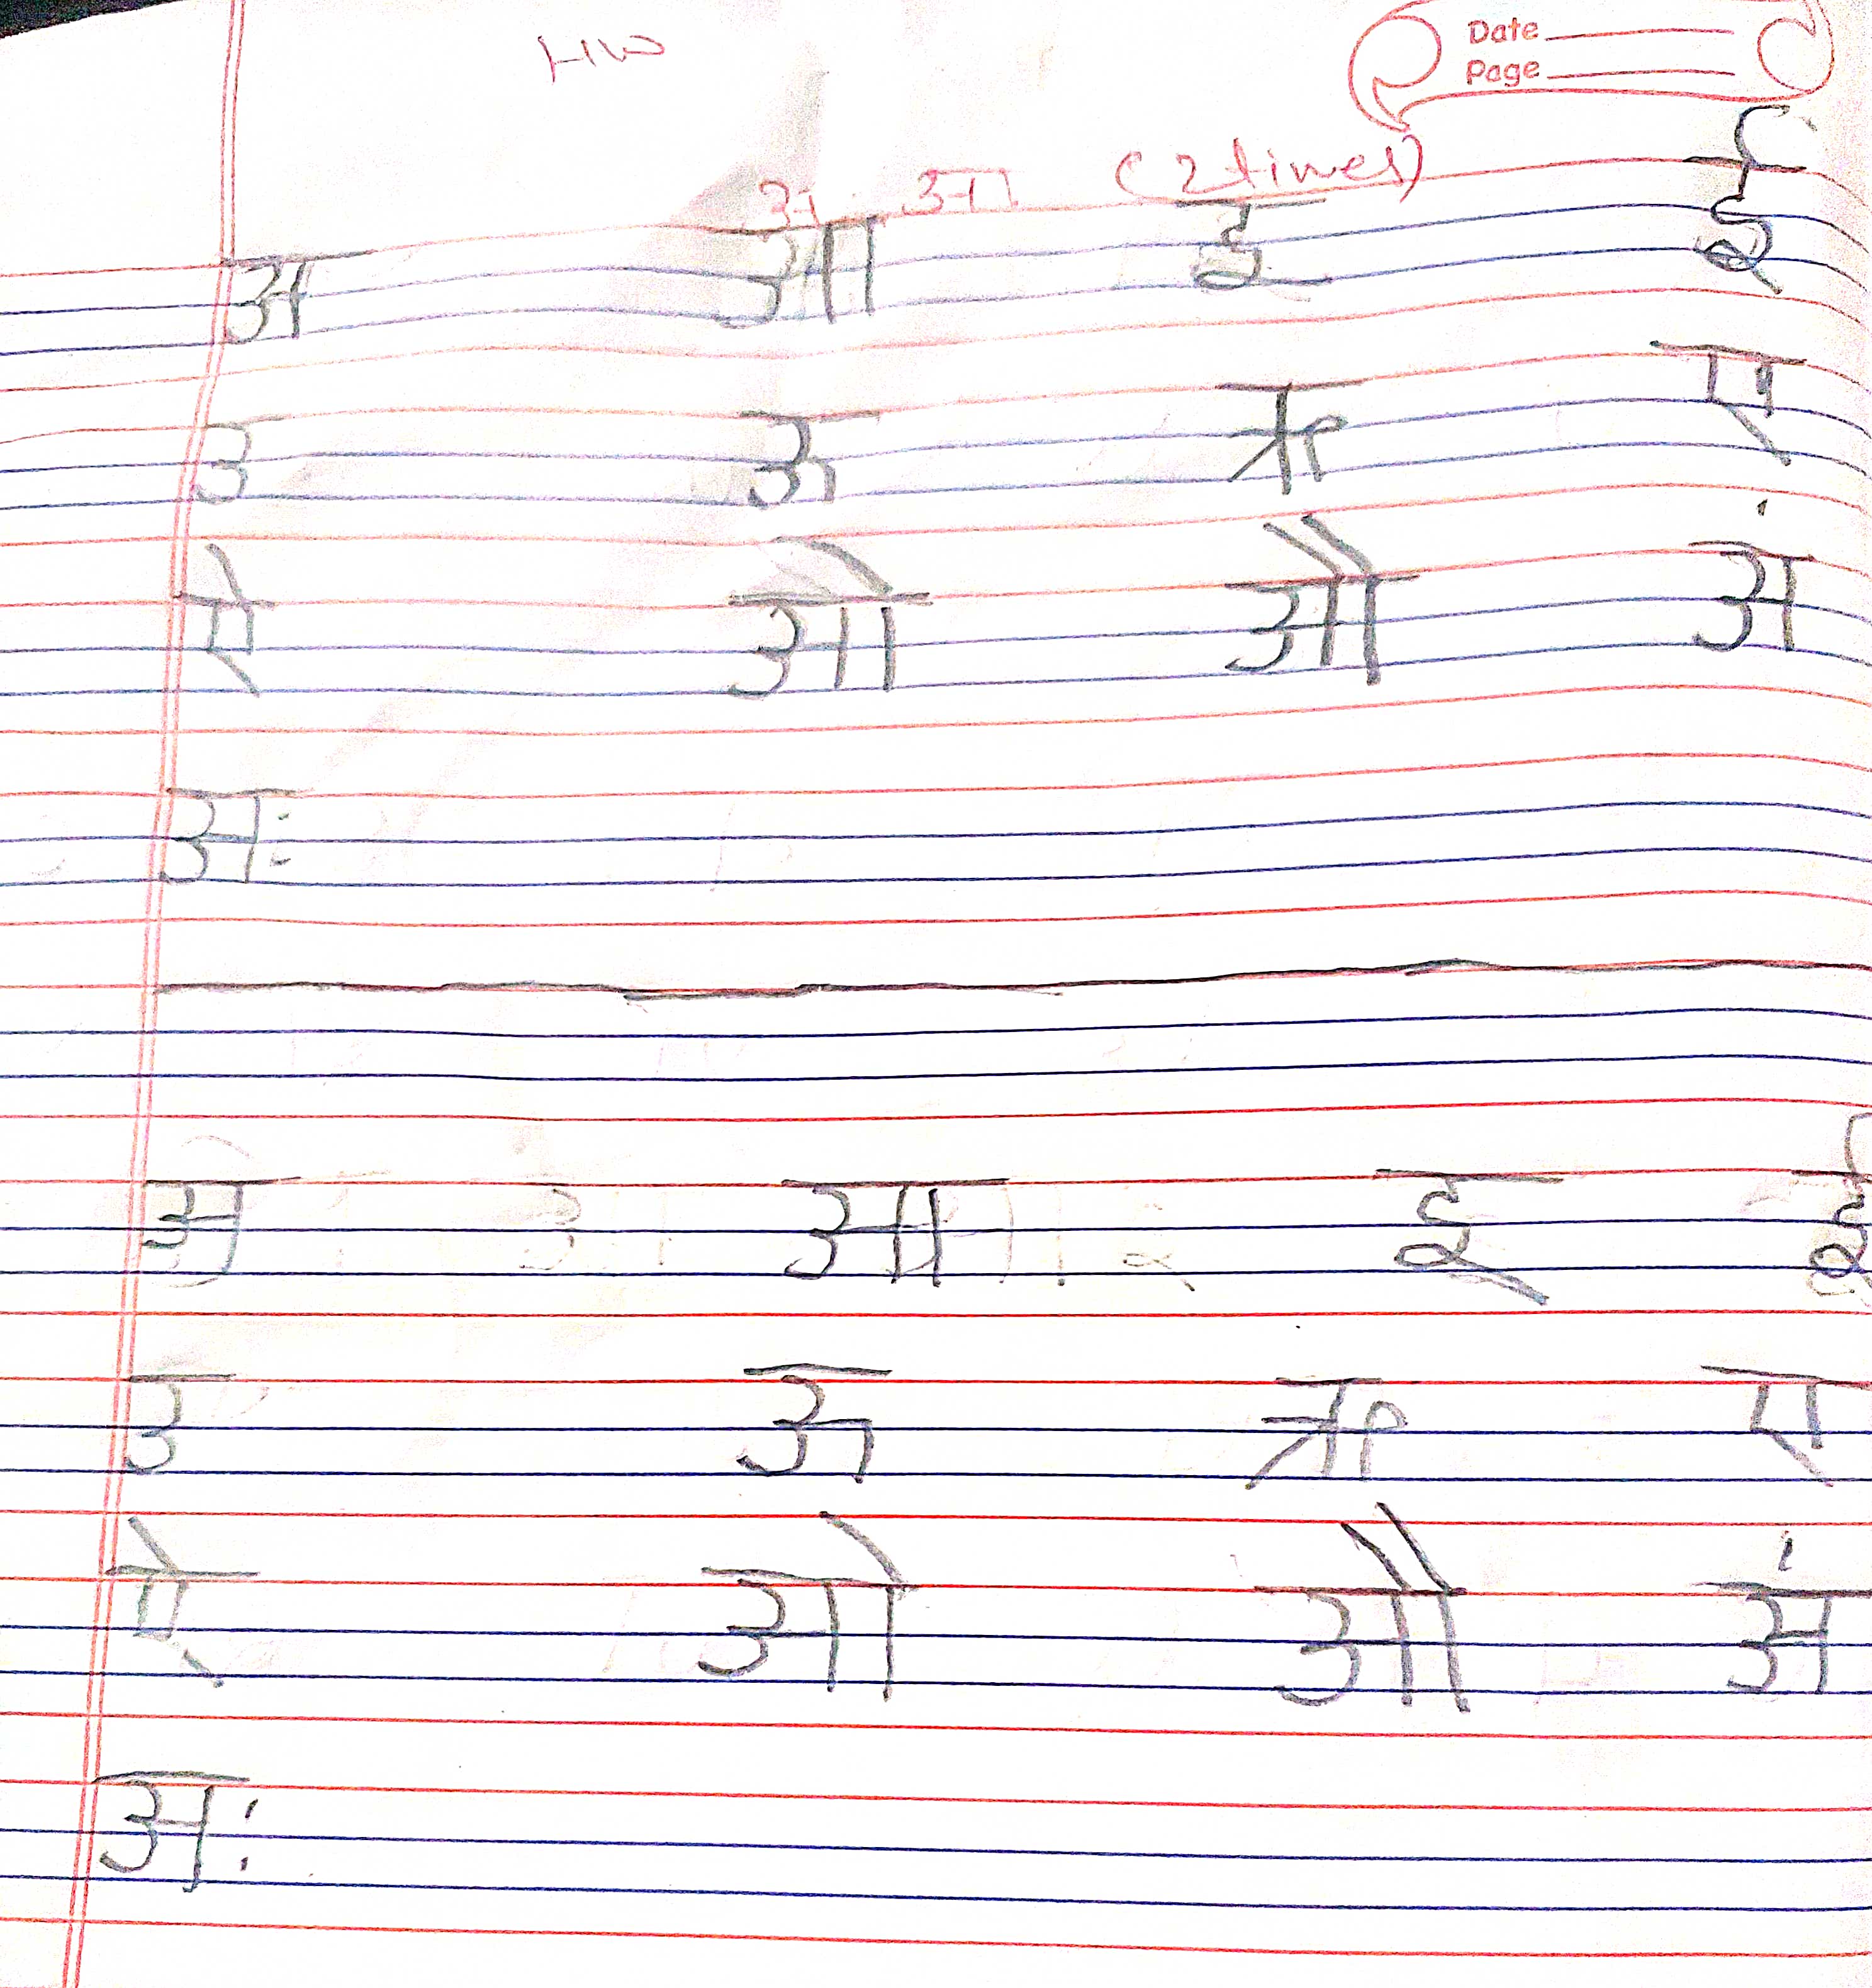 HW
Date
Page
अ आ (2 times)
अ आ इ ई
उ ऊ ऋ ए
ऐ ओ औ अं
अः
अ आ इ ई
उ ऊ ऋ ए
ऐ ओ औ अं
अः